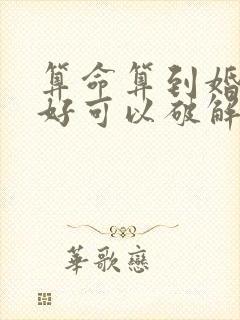 算命算到婚
好可以破解
華歌戀